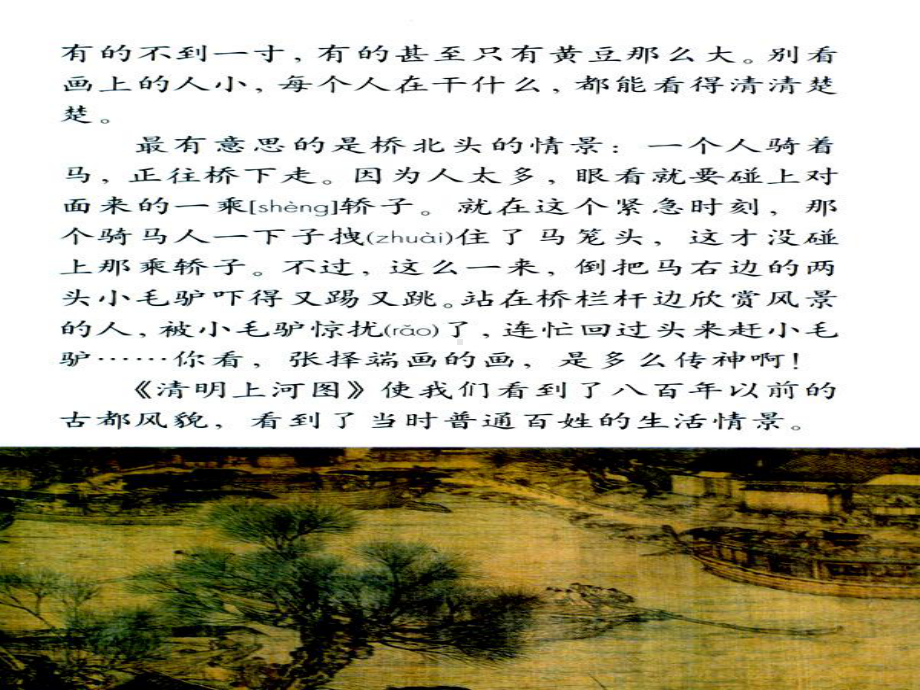 有的不到一寸，有的甚至只有黄豆那么大。别看
画上的人小，每个人在干什么，都能看得清清楚
楚。
最有意思的是桥北头的情景：一个人骑着
马，正往桥下走。因为人太多，眼看就要碰上对
面来的一乘[shèng]轿子。就在这个紧急时刻，那
个骑马人一下子拽(zhuài)住了马笼头，这才没碰
上那乘轿子。不过，这么一来，倒把马右边的两
头小毛驴吓得又踢又跳。站在桥栏杆边欣赏风景
的人，被小毛驴惊扰(rǎo)了，连忙回过头来赶小毛
驴……你看，张择端画的画，是多么传神啊！
《清明上河图》使我们看到了八百年以前的
古都风貌，看到了当时普通百姓的生活情景。